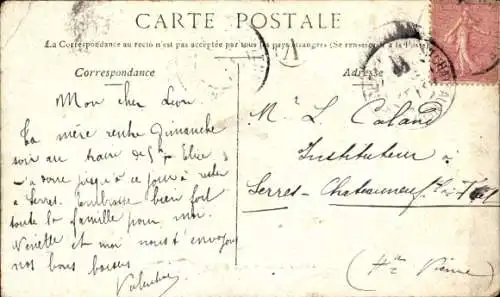 CARTE POSTALE
La Correspondance au recto n'est pas acceptée par tous les pays étrangers (Se renseigner à la Poste)
Correspondance
Adresse
Mon cher Leon
Ta mère rentre Dimanche
soir au train de 5h
a donc jusqu'à ce jour à rester
à Serres. Embrasse bien fort
toute la famille pour moi.
Nenette et moi nous t'envoyons
nos bons baisers
Valentine
Mr L. Caland
Instituteur à
Serres-Chateauneuf
(Hte Vienne)